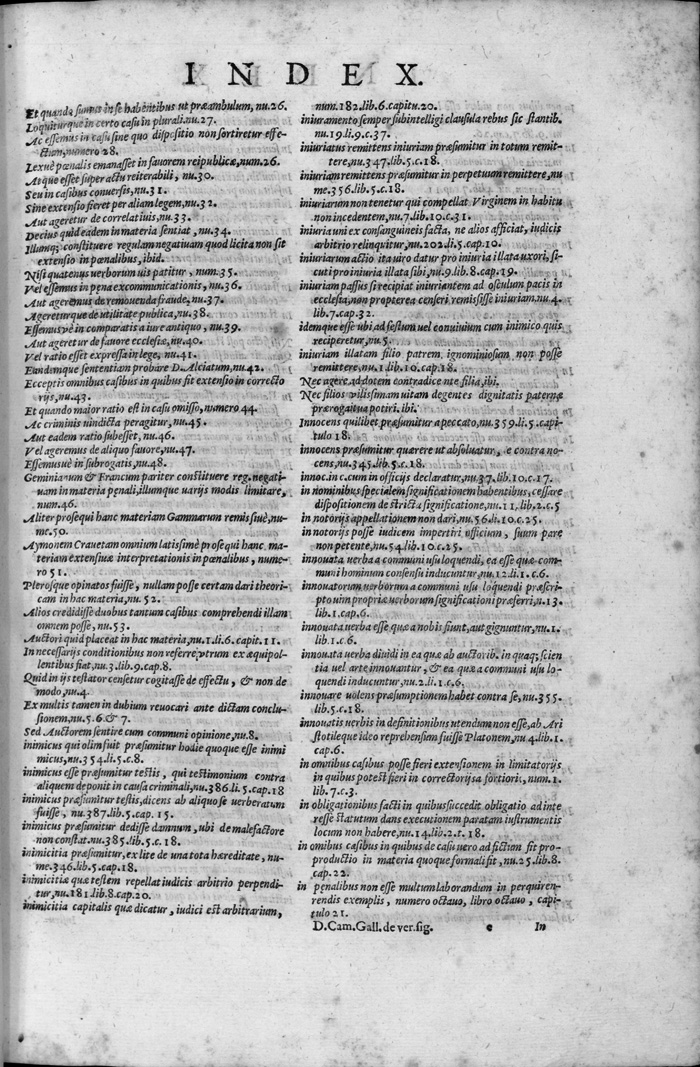 INDEX.
Et quando sumus in se habentibus ut præambulum, nu.26.
Loquiturque in certo casu in plurali.nu.27.
Ac essemus in casu sine quo dispositio non sortiretur effe-
ctum, numero 28.
Lex uè pœnalis emanasset in fauorem reipublicæ, num.26.
Atque esset super actu reiterabili, nu.30.
Seu in casibus conuersis, nu.31.
Sine extensio fieret per aliam legem, nu.32.
Aut ageretur de correlatiuis, nu.33.
Decius quid eadem in materia sentiat, nu.34.
Illamq; constituere regulam negatiuam quod licita non sit
extensio in pœnalibus, ibid.
Nisi quatenus uerborum uis patitur, num.35.
Vel essemus in pena excommunicationis, nu.36.
Aut ageremus de remouenda fraude, nu.37.
Agereturque de utilitate publica, nu.38.
Essemusuè in comparatis a iure antiquo, nu.39.
Aut ageretur de fauore ecclesiæ, nu.40.
Vel ratio esset expressa in lege, nu.41.
Eandemque sententiam probare D.Alciatum, nu.42.
Ecceptis omnibus casibus in quibus fit extensio in correcto
rijs, nu.43.
Et quando maior ratio est in casu omisso, numero 44.
Ac criminis uindicta peragitur, nu.45.
Aut eadem ratio subesset, nu.46.
Vel ageremus de aliquo fauore, nu.47.
Essemusuè in subrogatis, nu.48.
Geminianum & Francum pariter constituere reg. negati-
uam in materia penali, illumque uarijs modis limitare,
num.46.
Aliter prosequi hanc materiam Gammarum remissiuè, nu-
me.50.
Aymonem Crauetam omnium latissimè prosequi hanc ma-
teriam extensiuæ interpretationis in pœnalibus, nume-
ro 51.
Plerosque opinatos fuisse, nullam posse certam dari theori-
cam in hac materia, nu.52.
Alios credidisse duobus tantum casibus comprehendi illam
omnem posse, nu.53.
Auctori quid placeat in hac materia, nu.1.li.6.capit.11.
In necessarijs conditionibus non referre, utrum ex æquipol-
lentibus fiat, nu.3.lib.9.cap.8.
Quid in ijs testator censetur cogitasse de effectu, & non de
modo, nu.4.
Ex multis tamen in dubium reuocari ante dictam conclu-
sionem, nu.5.6.& 7.
Sed Auctorem sentire cum communi opinione, nu.8.
inimicus qui olim fuit præsumitur hodie quoque esse inimi
micus, nu.354.li.5.c.8.
inimicus esse præsumitur testis, qui testimonium contra
aliquem deponit in causa criminali, nu.386.li.5.cap.18
inimicus præsumitur testis, dicens ab aliquo se uerberatum
fuisse, nu.387.lib.5.cap.15.
inimicus præsumitur dedisse damnum, ubi de malefactore
non constat.nu.385.lib.5.c.18.
inimicitia præsumitur, ex lite de una tota hæreditate, nu-
me.346.lib.5.cap.18.
inimicitiæ quæ testem repellat iudicis arbitrio perpendi-
tur, nu.181.lib.8.cap.20.
inimicitia capitalis quæ dicatur, iudici est arbitrarium,
num.182.lib.6.capitu.20.
iniuramento semper subintelligi clausula rebus sic stantib.
nu.19.li.9.c.37.
iniuriatus remittens iniuriam præsumitur in totum remit-
tere, nu.347.lib.5.c.18.
iniuriam remittens præsumitur in perpetuum remittere, nu
me.356.lib.5.c.18.
iniuriarum non tenetur qui compellat Virginem in habitu
non incedentem, nu.7.lib.10.c.31.
iniuria uni ex consanguineis facta, ne alios afficiat, iudicis
arbitrio relinquitur, nu.202.li.5.cap.10.
iniuriarum actio ita uiro datur pro iniuria illata uxori, si-
cuti pro iniuria illata sibi, nu.9.lib.8.cap.19.
iniuriam passus si recipiat iniuriantem ad osculum pacis in
ecclesia, non propterea censeri remisisse iniuriam, nu.4.
lib.7.cap.32.
idemque esse ubi ad festum uel conuiuium cum inimico quis
reciperetur, nu.5.
iniuriam illatam filio patrem, ignominiosum non posse
remittere, nu.11.lib.10.cap.18.
Nec agere ad dotem contradicente filia, ibi.
Nec filios uilissimam uitam degentes dignitatis paternæ
prærogatiua potiri. ibi.
Innocens quilibet præsumitur a peccato, nu.359.li.5.capi-
tulo 18.
innocens præsumitur quærere ut absoluatur, e contra no-
cens, nu.345.lib.5.c.18.
innoc.in c.cum in officijs declaratur, nu.37.lib.10.c.17.
in nominibus specialem significationem habentibus, cessare
dispositionem de stricta significatione, nu.11, lib.2.c.5
in notorijs appellationem non dari, nu.56.li.10.c.25.
in notorijs posse iudicem impertiri officium, suum pare
non petente, nu.54.lib.10.c.25.
innouata uerba a communi usu loquendi, ea esse quæ com-
muni hominum consensu inducuntur, nu.12.li.1.c.6.
innouatorum uerborum a communi usu loquendi præscri-
pto uim propriæ uerborum significationi præferri, n.13.
lib.1.cap.6.
innouata uerba esse quæ a nobis fiunt, aut gignuntur, nu.1.
lib.1.c.6.
innouata uerba diuidi in ea quæ ab auctorib. in quaq; scien
tia uel arte innouantur, & ea quæ a communi usu lo-
quendi inducuntur, nu.2.li.1.c.6.
innouare uolens præsumptionem habet contra se, nu.355.
lib.5.c.18.
innouatis uerbis in definitionibus utendum non esse, ab Ari
stotileque ideo reprehensum fuisse Platonem, nu.4.lib.1.
cap.6.
in omnibus casibus posse fieri extensionem in limitatorijs
in quibus potest fieri in correctorijs a fortiori, num.1.
lib.7.c.3.
in obligationibus facti in quibus succedit obligatio ad inte
resse statutum dans executionem paratam instrumentis
locum non habere, nu.14.lib.2.t.18.
in omibus casibus in quibus de casu uero ad fictum fit pro-
productio in materia quoque formali fit, nu.25.lib.8.
cap.22.
in penalibus non esse multum laborandum in perquiren-
rendis exemplis, numero octauo, libro octauo, capi-
tulo 21.
D.Cam.Gall.de ver.sig. e In